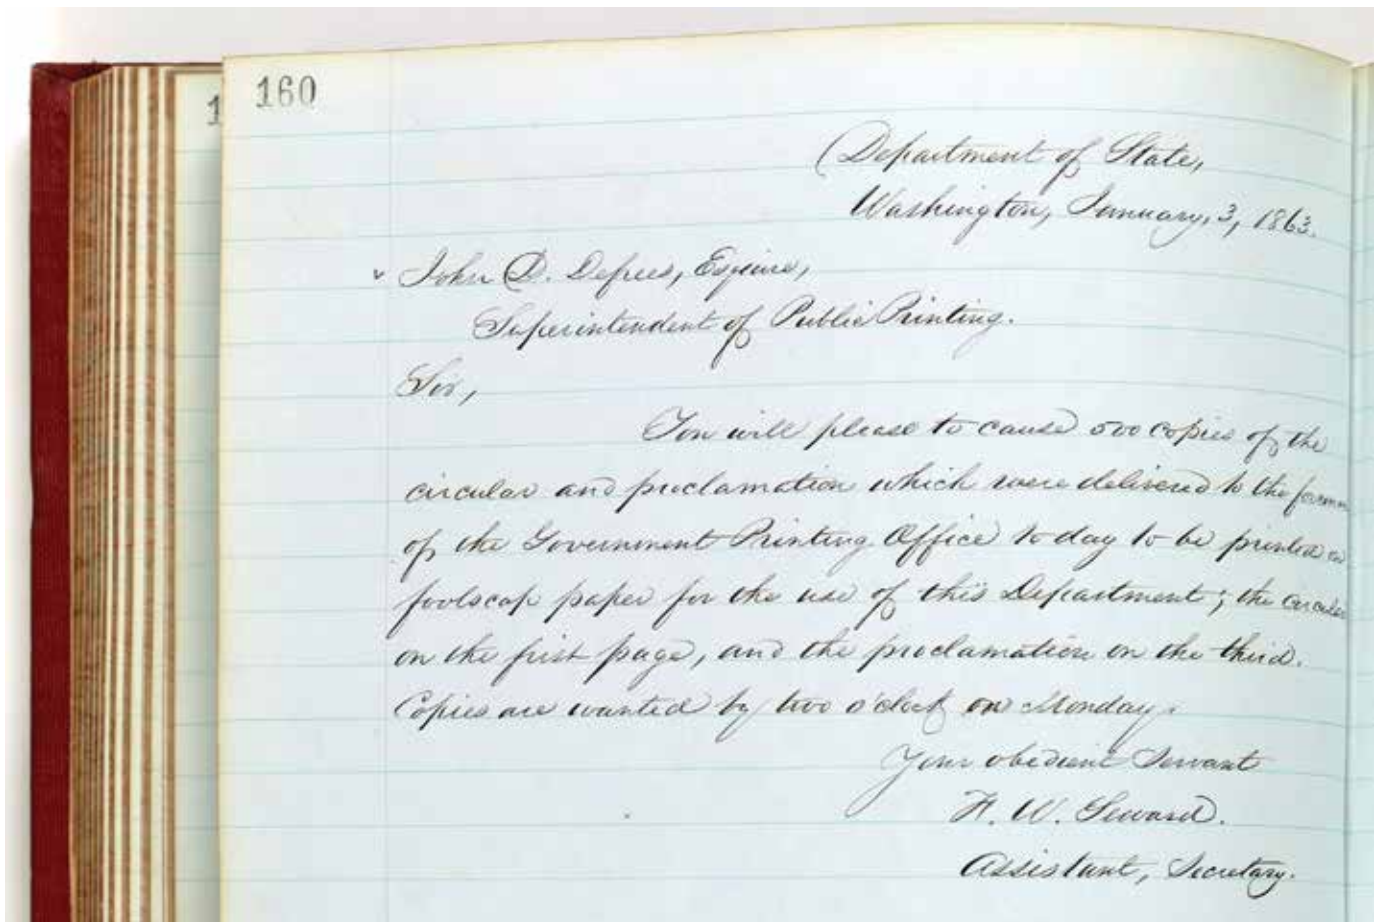 160
1
Department of State,
Washington, January, 3, 1863.
John D. Defrees, Esquire,
Superintendent of Public Printing.
Sir,
You will please to cause 500 copies of the
circular and proclamation which were delivered to the foreman
of the Government Printing Office to day to be printed on
foolscap paper for the use of this Department; the circular
on the first page, and the proclamation on the third.
Copies are wanted by two o'clock on Monday.
Your obedient Servant
F. W. Seward.
Assistant, Secretary.